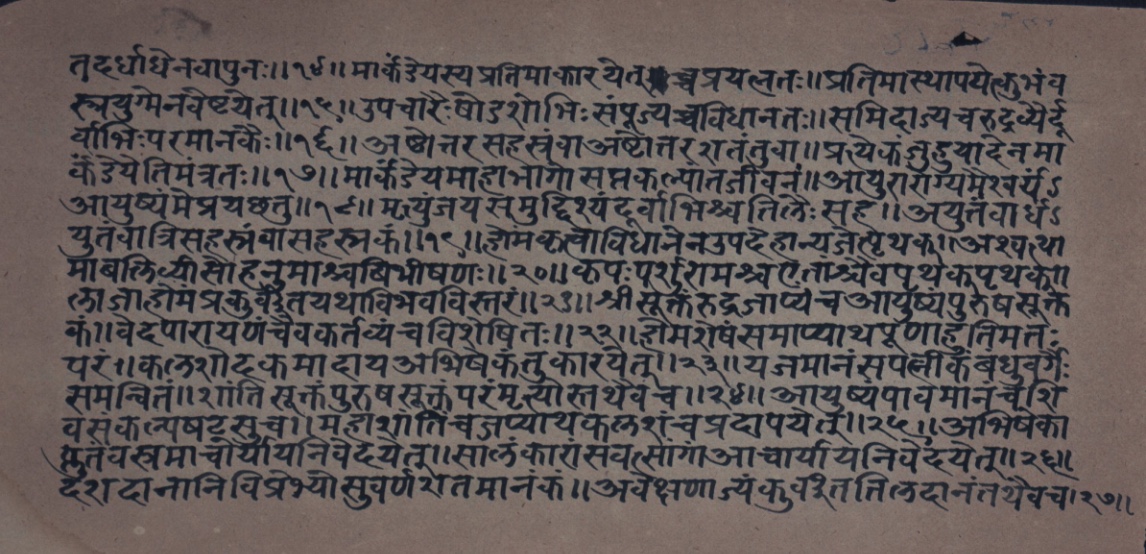 तदर्धार्धेनवापुनः॥१४॥मार्कंडेयस्यप्रतिमाकारयेत् च्चप्रयत्नतः॥प्रतिमास्थापयेत्कुभंव
स्त्रयुग्मेनवेष्टयेत्॥१५॥उपचारैःषोडशोभिःसंपूज्यच्चविधानतः॥समिदाज्यचरुद्रव्यैर्दू
र्वाभिःपरमानकैः॥१६॥अष्टोत्तरसहस्रंवाअष्टोत्तरशतंतुवा॥प्रत्येकंजुहुयादेनमा
र्कंडेयेतिमंत्रतः॥१७॥मार्कंडेयमाहाभागोसप्तकल्पांतजीवनं॥आयुरारोग्यमैश्वर्यंऽ
आयुष्यंमेप्रयछतु॥१८॥मृत्युंजयसमुद्दिश्यंदूर्वाभिश्चतिलैःसह॥अयुतंवार्धऽ
युतंवात्रिसहस्त्रंवासहस्त्रकं॥१९॥होमंकृत्वाविधानेनउपदेहान्यजेत्पृथक्॥अश्वत्था
माबलिर्व्यासोहनुमाश्चबिभीषणः॥२०॥कृपःपर्शुरामश्चएतांश्चैवपृथकपृथक्॥ति
लाजाहोमंप्रकुर्वीतयथाविभवविस्तरं॥२१॥श्रीसूक्तंरुद्रजाप्यंचआयुष्यपुरुषसूक्त
कं॥वेदपारायणंचैवकर्तव्यंचविशेषितः॥२२॥होमशेषंसमाप्याथपूर्णाहुतिमतः
परं॥कलशोदकमादायअभिषेकंतुकारयेत्॥२३॥यजमानंसपत्नीकंबंधुवर्गैः
समन्वितं॥शांतिसूक्तंपुरुषसूक्तंपरंमृत्योस्तथैवच॥२४॥आयुष्यंपावमानंचशि
वसंकल्पषटसुच॥महाशांतिंचजप्याथकलशंचप्रदापयेत्॥२५॥अभिषेका
प्लुतंवस्त्रमाचार्यायनिवेदयेत्॥सालंकारांसवत्सांगांआचार्यायनिवेदयेत्॥२६॥
दशदानानिविप्रेभ्योसुवर्णशतमानकं॥अवेक्षणाज्यंकुर्वीततिलदानंतथैवच।२७॥